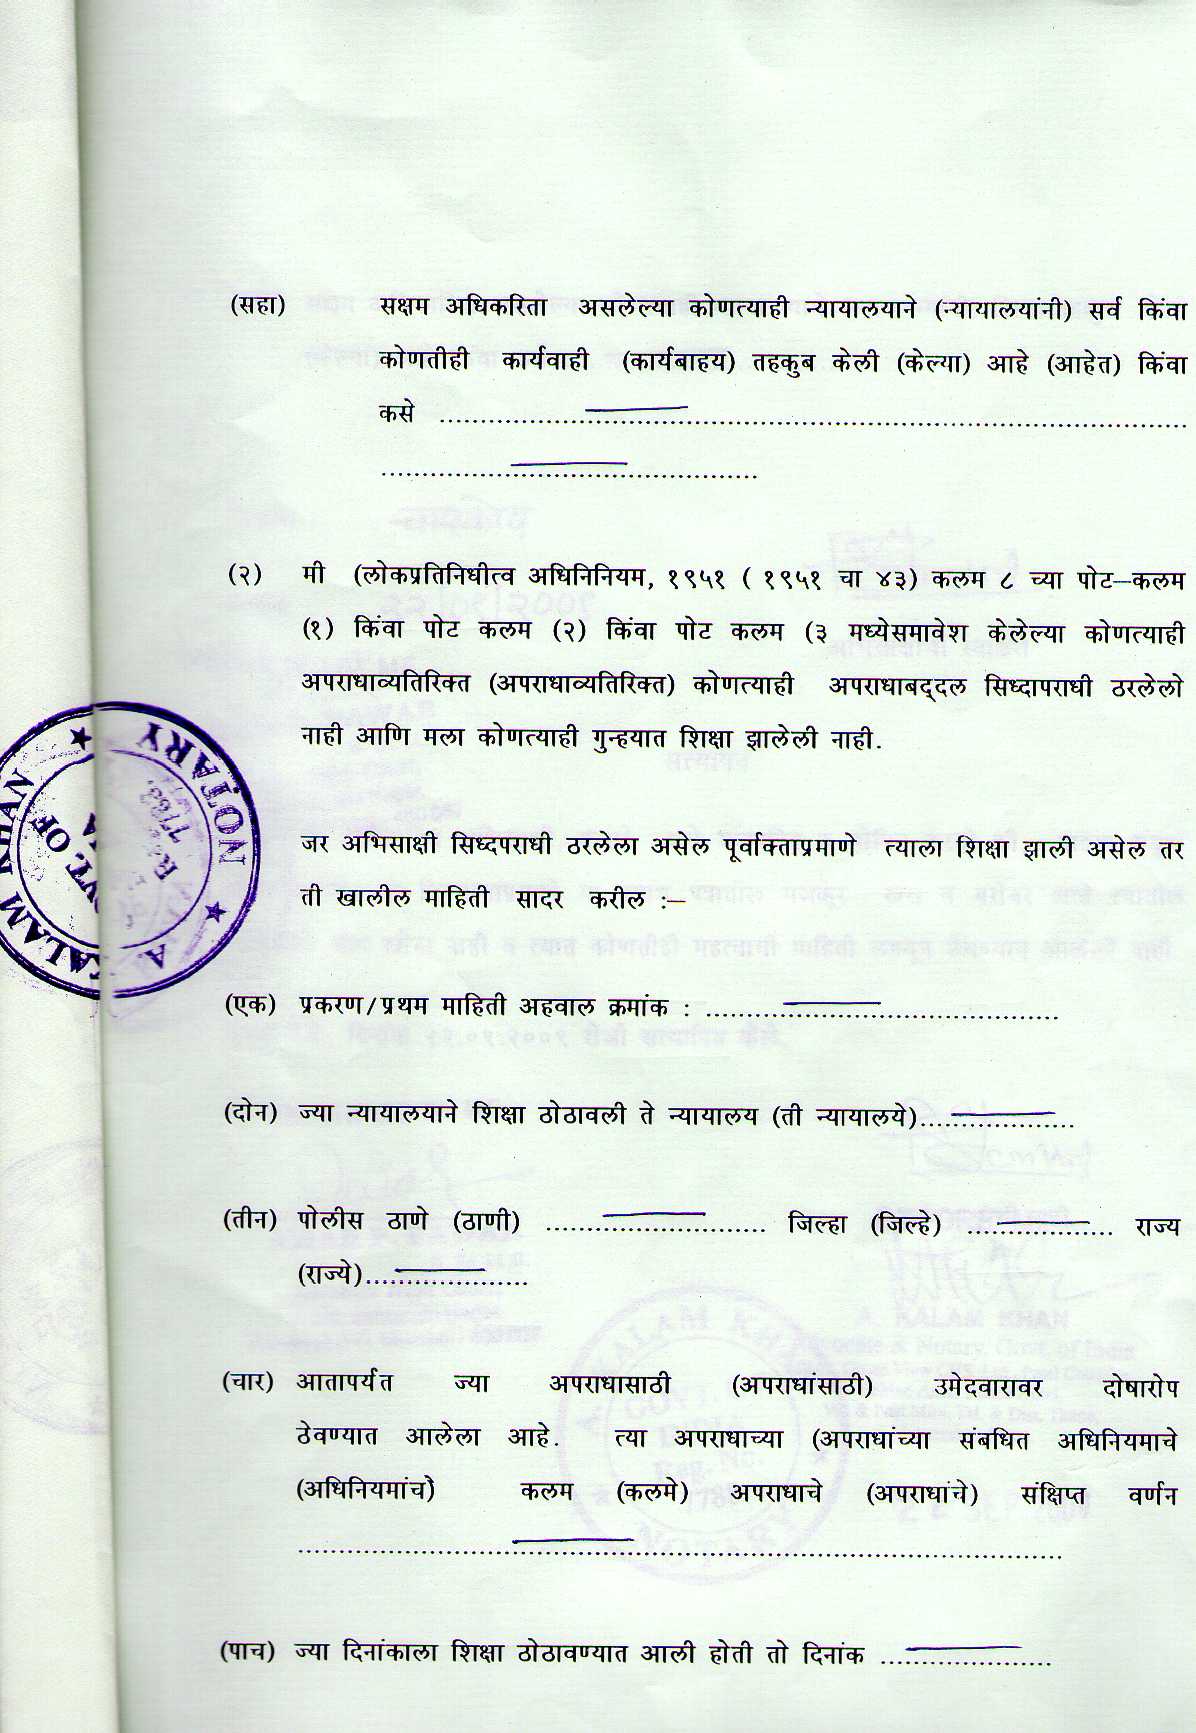 (सहा) सक्षम अधिकरिता असलेल्या कोणत्याही न्यायालयाने (न्यायालयांनी) सर्व किंवा
कोणतीही कार्यवाही (कार्यबाहय) तहकुब केली (केल्या) आहे (आहेत) किंवा
कसे ..........................................................................................
..............................................
(२) मी (लोकप्रतिनिधीत्व अधिनिनियम, १९५१ ( १९५१ चा ४३) कलम ८ च्या पोट–कलम
(१) किंवा पोट कलम (२) किंवा पोट कलम (३ मध्येसमावेश केलेल्या कोणत्याही
अपराधाव्यतिरिक्त (अपराधाव्यतिरिक्त) कोणत्याही अपराधाबद्दल सिध्दापराधी ठरलेलो
नाही आणि मला कोणत्याही गुन्हयात शिक्षा झालेली नाही.
जर अभिसाक्षी सिध्दपराधी ठरलेला असेल पूर्वाक्ताप्रमाणे त्याला शिक्षा झाली असेल तर
ती खालील माहिती सादर करील :–
(एक) प्रकरण/प्रथम माहिती अहवाल क्रमांक : ...........................................
(दोन) ज्या न्यायालयाने शिक्षा ठोठावली ते न्यायालय (ती न्यायालये)...................
(तीन) पोलीस ठाणे (ठाणी) ........................... जिल्हा (जिल्हे) .................. राज्य
(राज्ये)....................
(चार) आतापर्यत ज्या अपराधासाठी (अपराधांसाठी) उमेदवारावर दोषारोप
ठेवण्यात आलेला आहे. त्या अपराधाच्या (अपराधांच्या संबधित अधिनियमाचे
(अधिनियमांचे) कलम (कलमे) अपराधाचे (अपराधांचे) संक्षिप्त वर्णन
..............................................................................................
(पाच) ज्या दिनांकाला शिक्षा ठोठावण्यात आली होती तो दिनांक .....................
A. KALAM KHAN
NOTARY